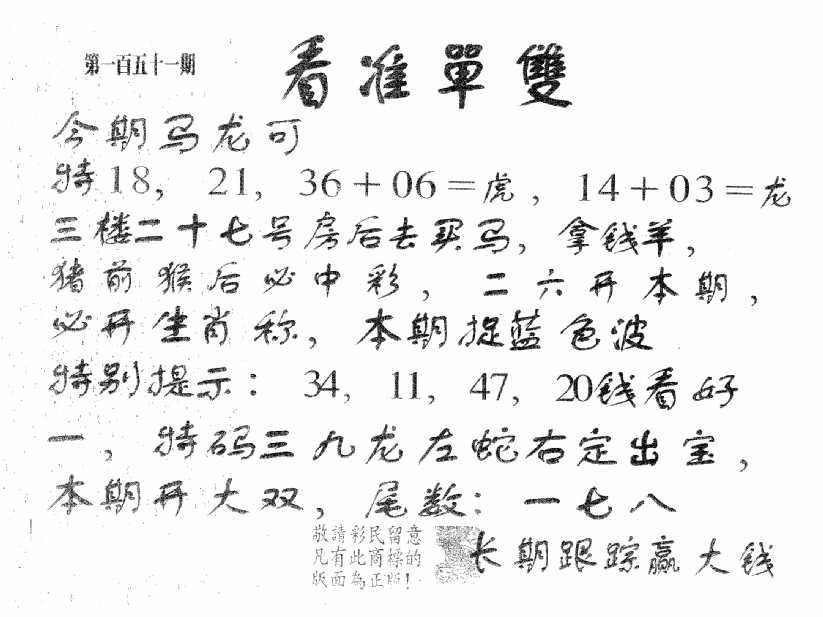 第一百五十一期
看准單雙
今期马龙可
特18, 21, 36+06=虎, 14+03=龙
三楼二十七号房后去买马, 拿钱羊,
猪前猴后必中彩, 二六开本期,
必开生肖称, 本期捉蓝色波
特别提示: 34, 11, 47, 20钱看好
一, 特码三九龙左蛇右定出宝,
本期开大双, 尾数: 一七八
敬請彩民留意
凡有此商標的
版面為正版!
长期跟踪赢大钱